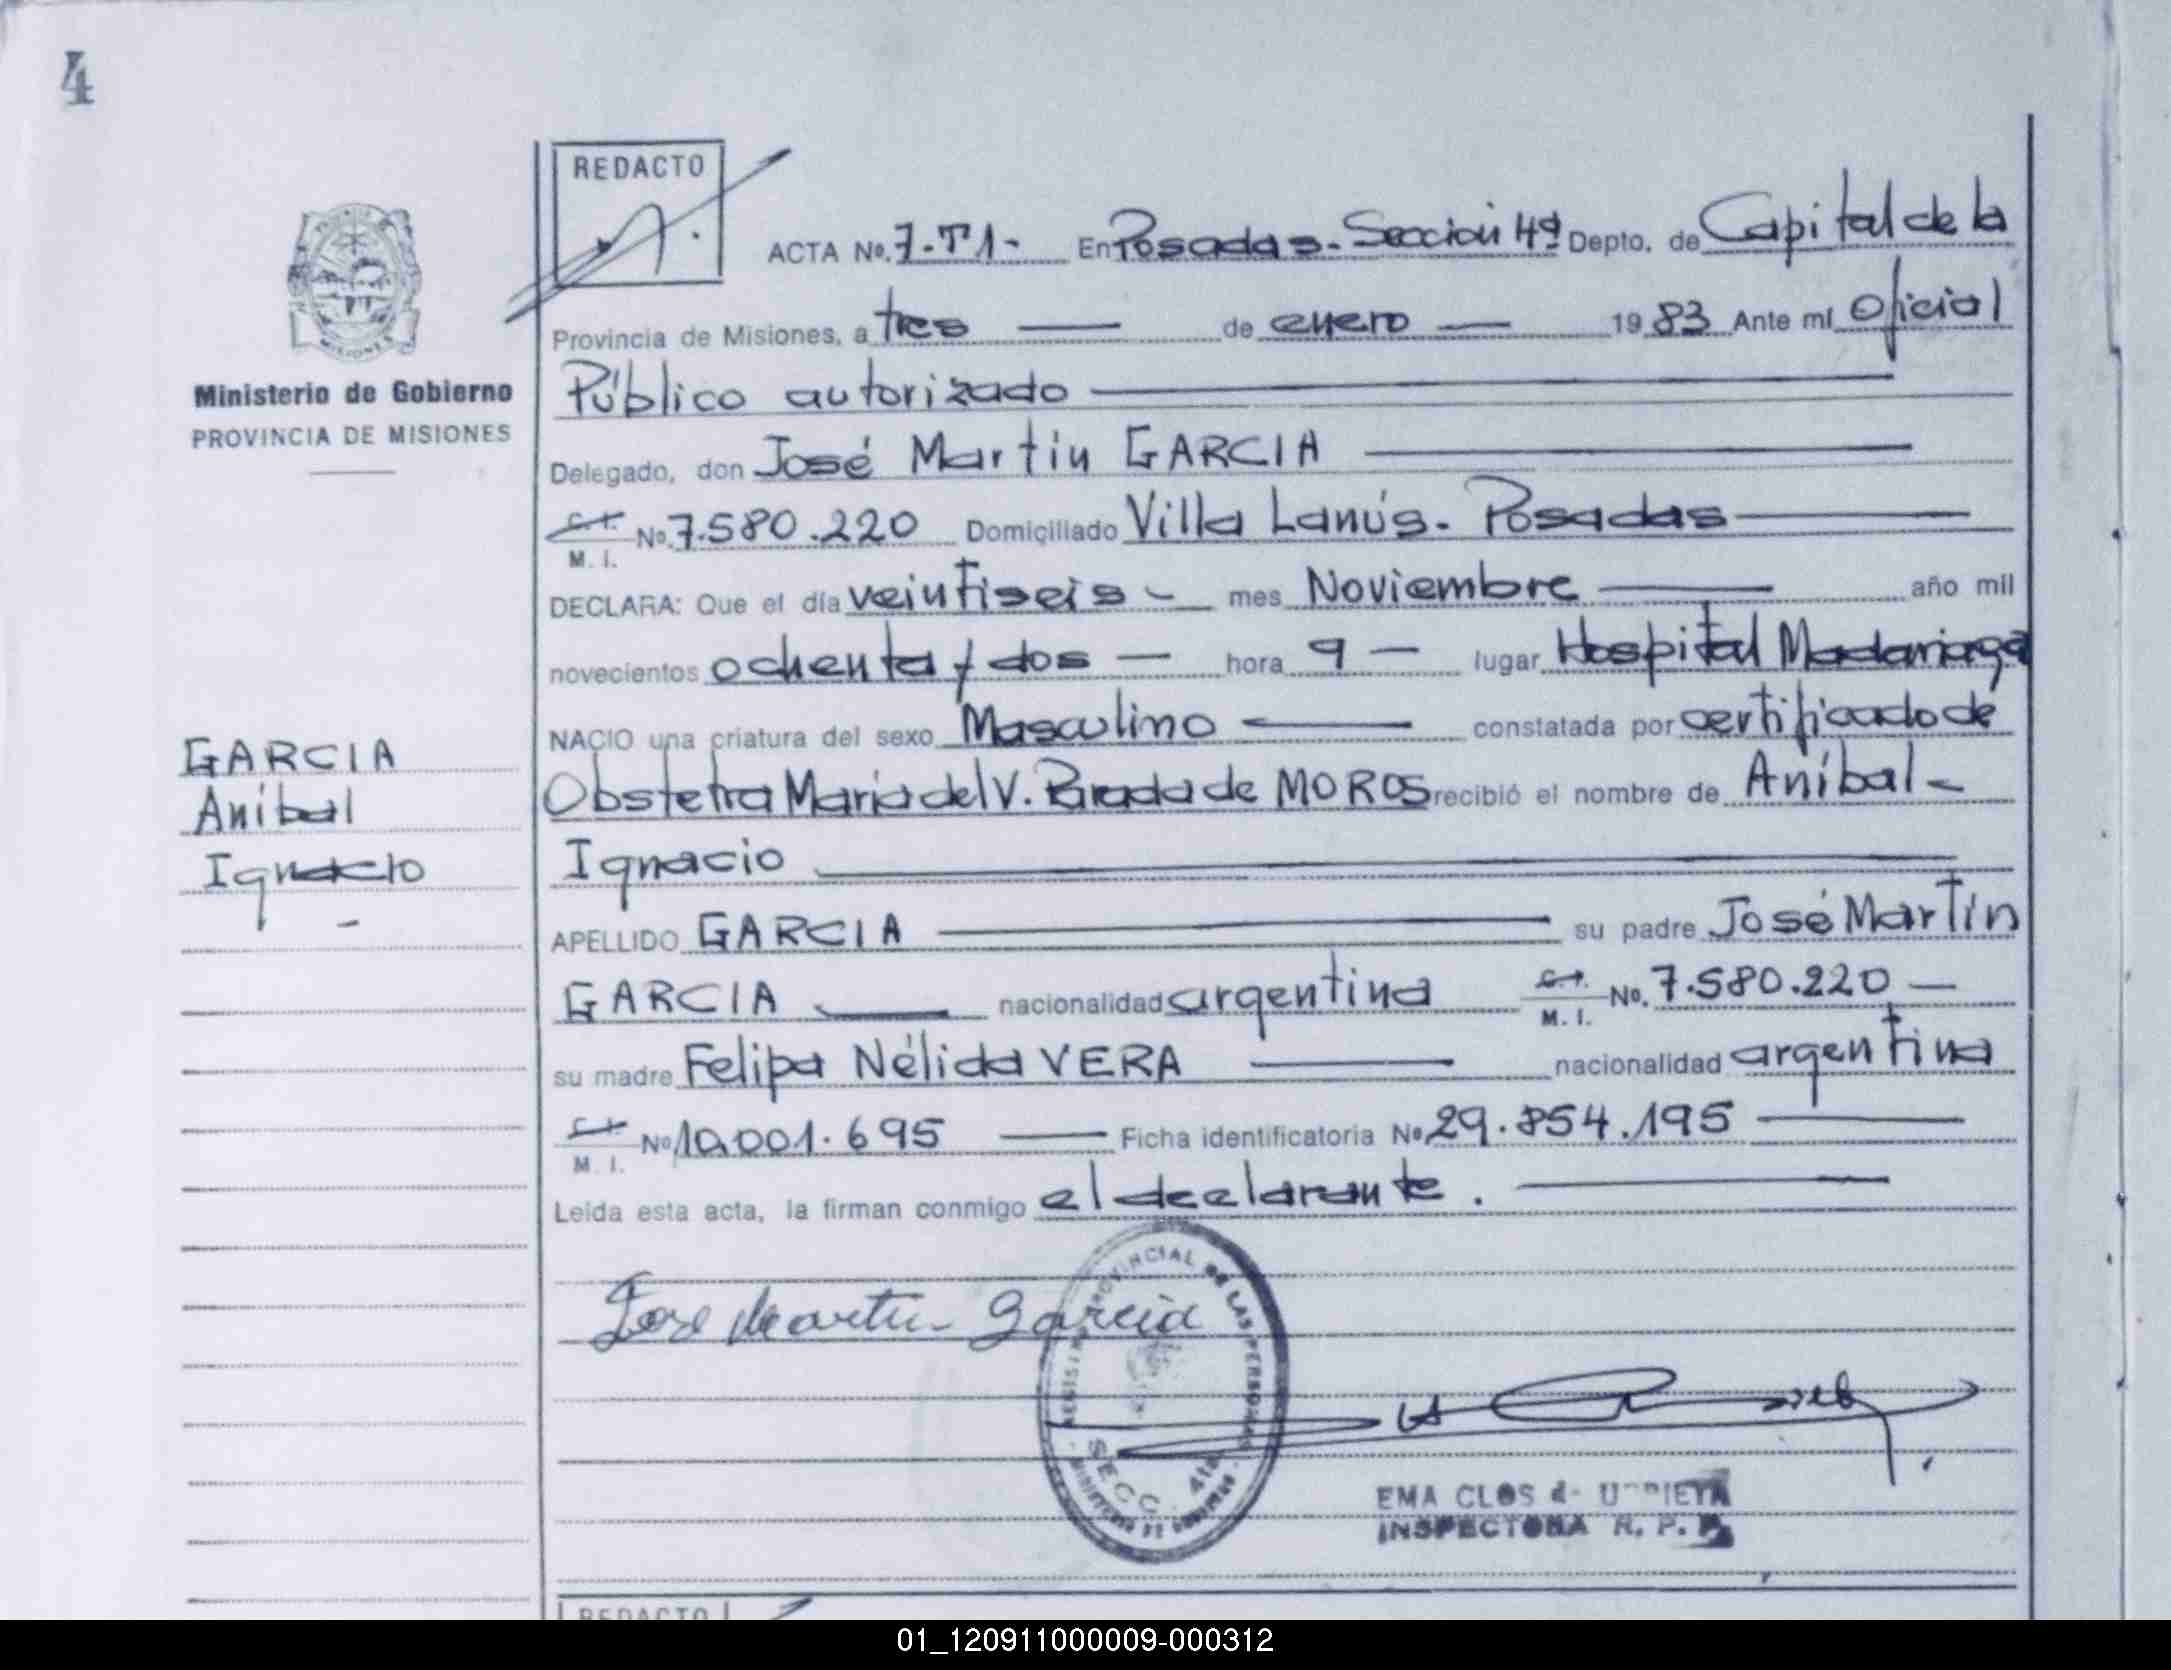 4
REDACTO
ACTA No. 7-T1- En Posadas.-Sección 4ª Depto. de Capital de la
Provincia de Misiones, a tres — de enero — 19 83 Ante mí Oficial
Público autorizado
Ministerio de Gobierno
PROVINCIA DE MISIONES
Delegado, don José Martin GARCIA
C.I. M. I. No. 7.580.220 Domiciliado Villa Lanús. Posadas
DECLARA: Que el día veintiseis - mes Noviembre año mil
novecientos ochenta y dos — hora 9 — lugar Hospital Madariaga
NACIO una criatura del sexo Masculino — constatada por certificado de
Obstetra Maria del V. Prada de MOROS recibió el nombre de Aníbal -
Ignacio
GARCIA
Aníbal
Ignacio
-
APELLIDO GARCIA — su padre José Martín
GARCIA — nacionalidad argentina C.I. M. I. No. 7.580.220 —
su madre Felipa Nélida VERA — nacionalidad argentina
C.I. M. I. No 10.001.695 — Ficha identificatoria No 29.854.195
Leída esta acta, la firman conmigo el declarante.
Jose Martin Garcia
REGISTRO PROVINCIAL DE LAS PERSONAS
SECC. 4ta
MINISTERIO DE GOBIERNO
EMA CLOS de URRIETA
INSPECTORA R. P. P.
REDACTO
01_120911000009-000312